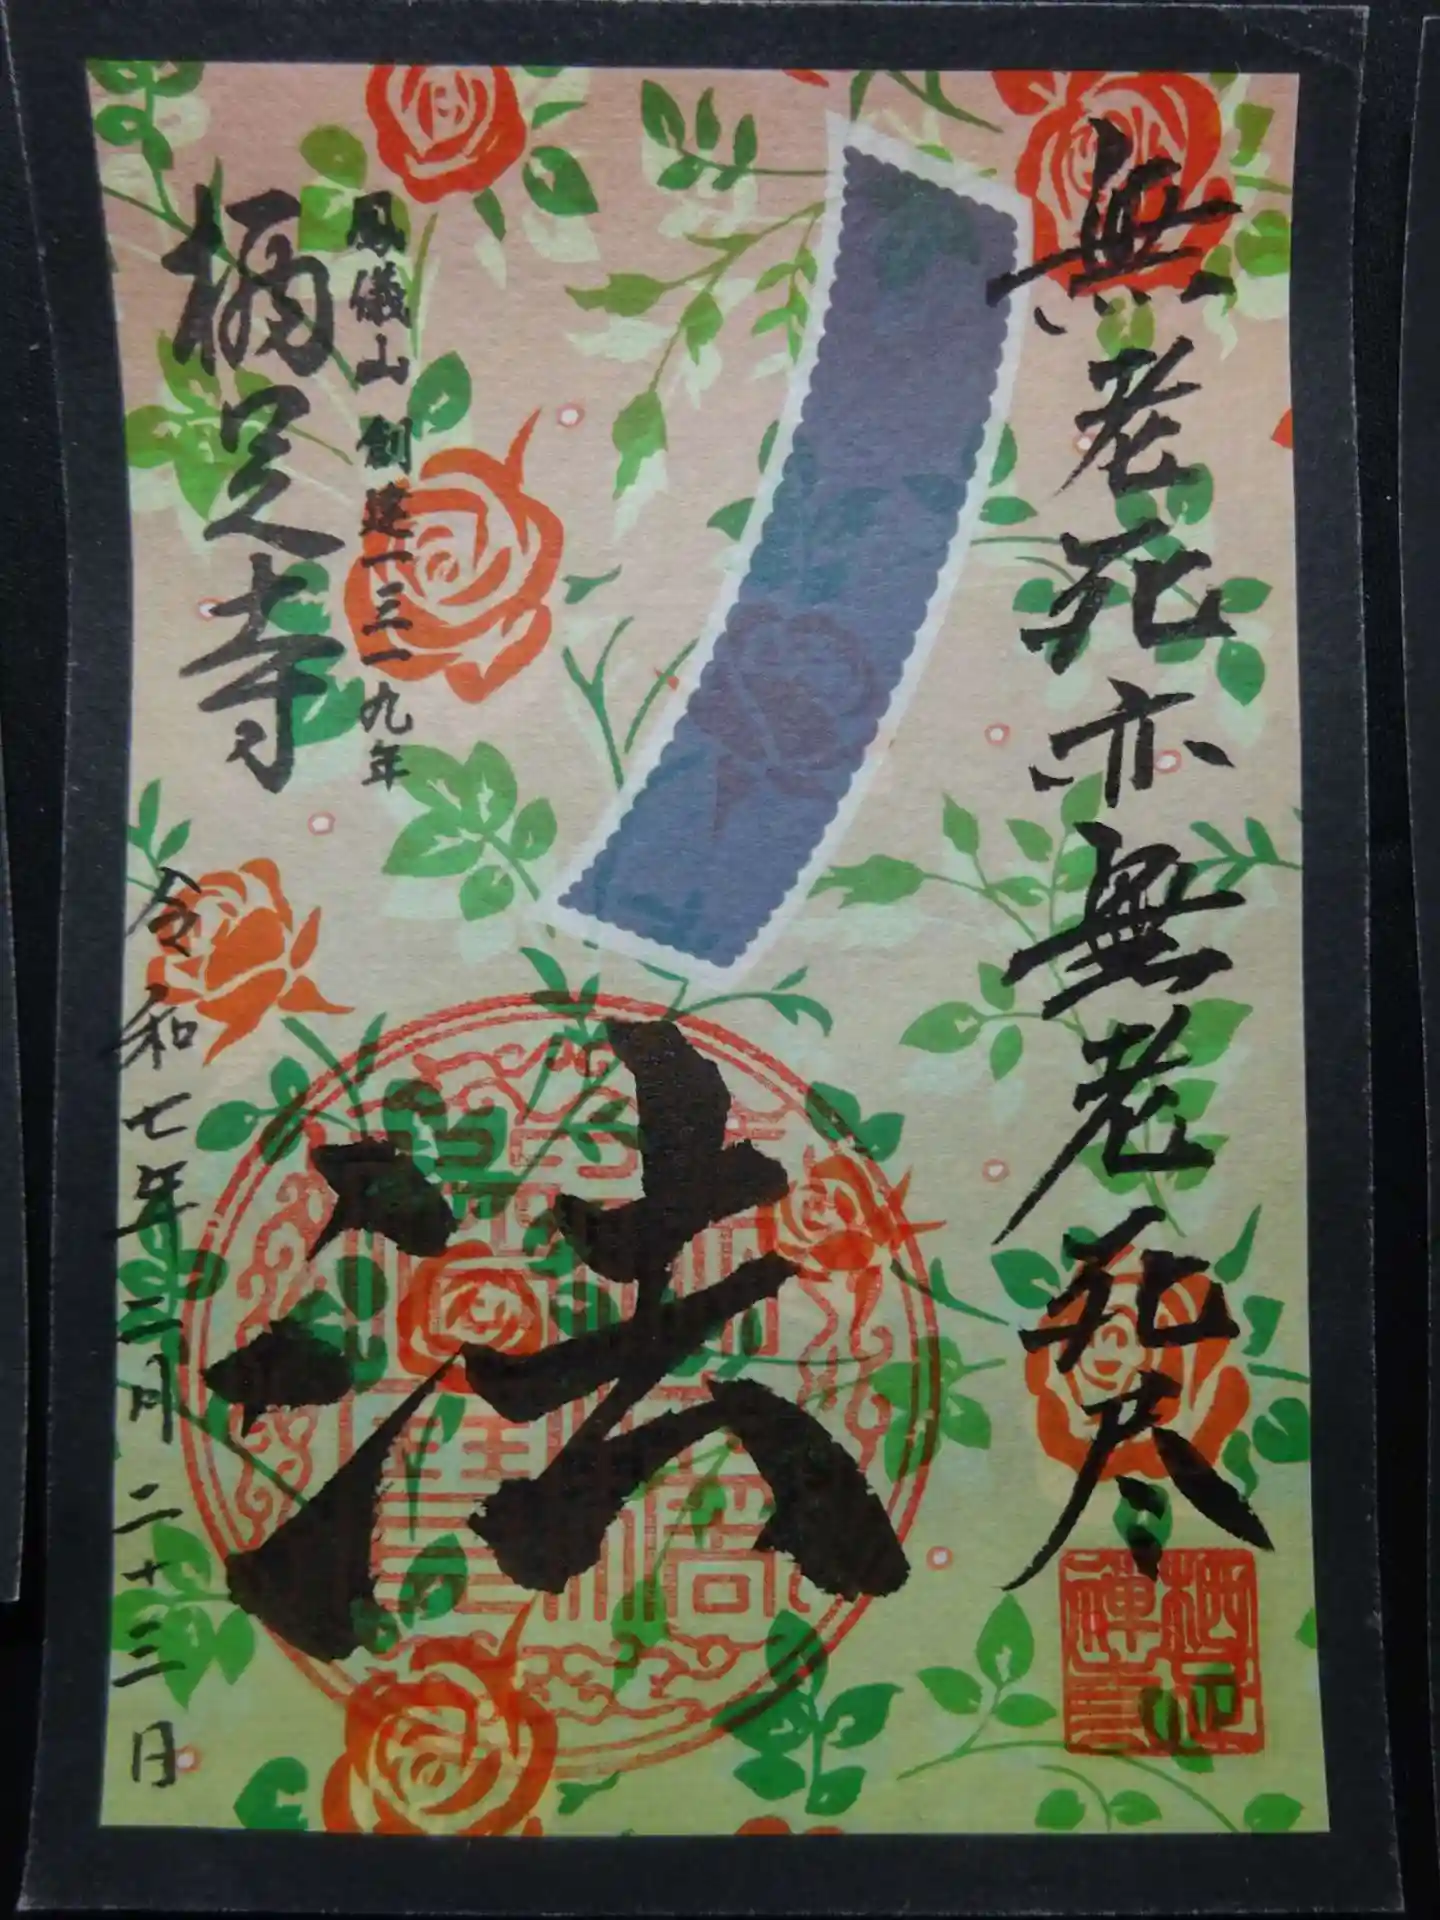 無老死亦無老死尽
法
鳳儀山創建一三一九年
栖足寺
令和七年二月二十三日
栖足禅寺